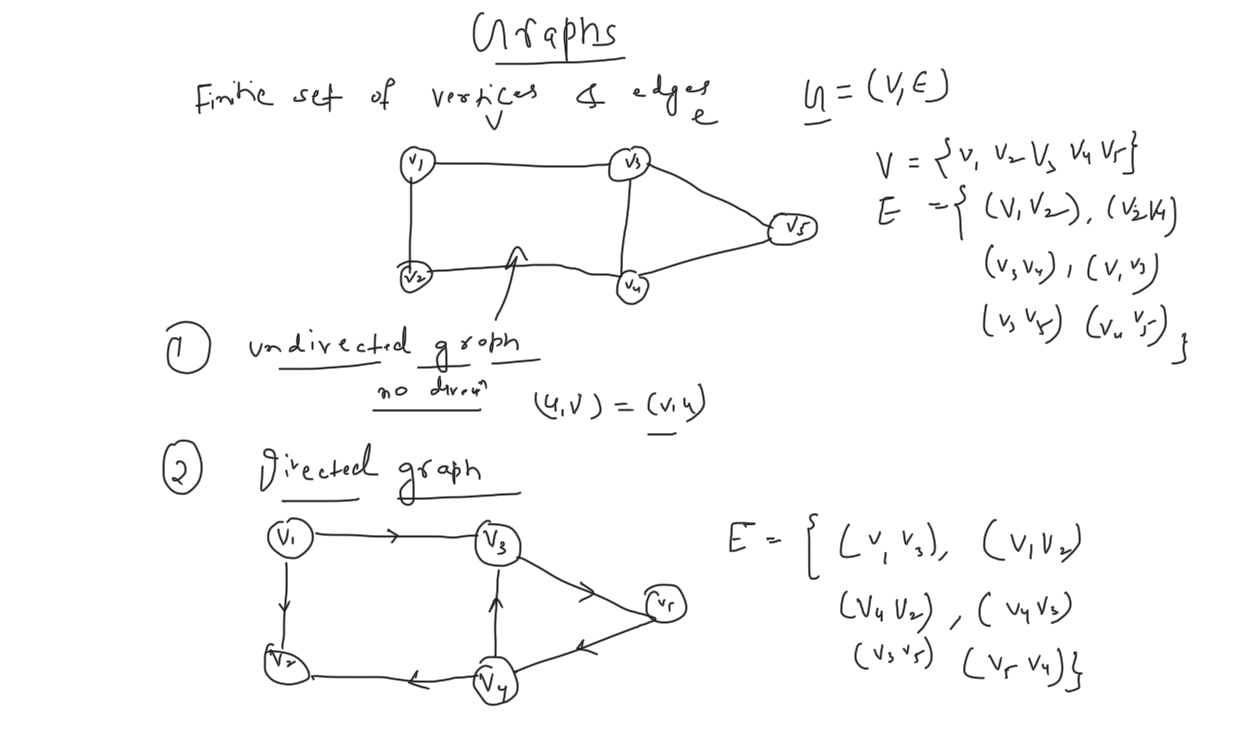 Graphs
Finitie set of vertices & edges
V e
G = (V, E)
V = {V1 V2 V3 V4 V5}
E = { (V1 V2), (V2 V4)
(V3 V4), (V1 V3)
(V3 V5) (V4 V5) }
V1 V3
V5
V2 V4
1 undirected graph
no
(u,v) = (v,u)
2 Directed graph
V1 V3
V5
V2 V4
E = { (V1 V3), (V1 V2)
(V4 V2), (V4 V3)
(V3 V5) (V5 V4)}